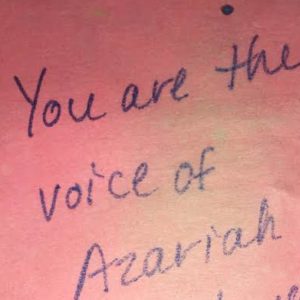 You are the
voice of
Azariah